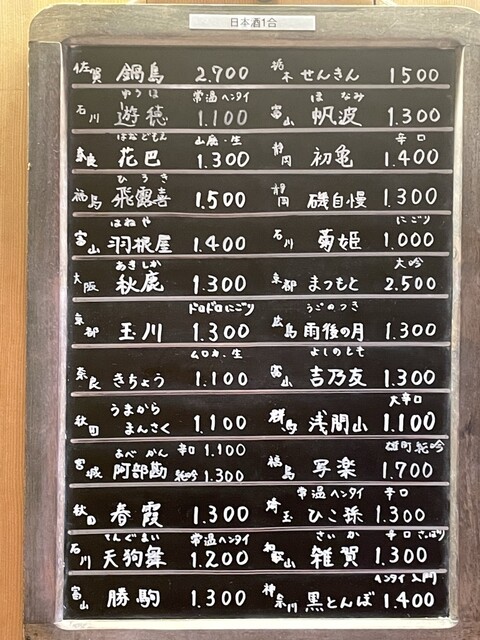 日本酒1合
佐賀 鍋島 2.700
ゆうほ 常温ヘンタイ
石川 遊穂 1.100
はなどもえ 山廃・生
奈良 花巴 1.300
ひろき
福島 飛露喜 1.500
はねや
富山 羽根屋 1.400
あきしか
大阪 秋鹿 1.300
ドロドロにごり
京都 玉川 1.300
ムロカ・生
奈良 きちょう 1.100
秋田 うまから
まんさく 1.100
あべかん 辛口 1.100
宮城 阿部勘 純吟 1.300
秋田 春霞 1.300
てんぐまい 常温ヘンタイ
石川 天狗舞 1.200
富山 勝駒 1.300
栃木 せんきん 1500
ほなみ
富山 帆波 1.300
辛口
静岡 初亀 1.400
静岡 磯自慢 1.300
にごり
石川 菊姫 1.000
大吟
京都 まつもと 2.500
うごのつき
広島 雨後の月 1.300
よしのとも
富山 吉乃友 1.300
大辛口
群馬 浅間山 1.100
雄町純吟
福島 写楽 1.700
常温ヘンタイ 辛口
埼玉 ひこ孫 1.300
さいか 辛口さっぱり
和歌山 雑賀 1.300
ヘンタイ入門
神奈川 黒とんぼ 1.400